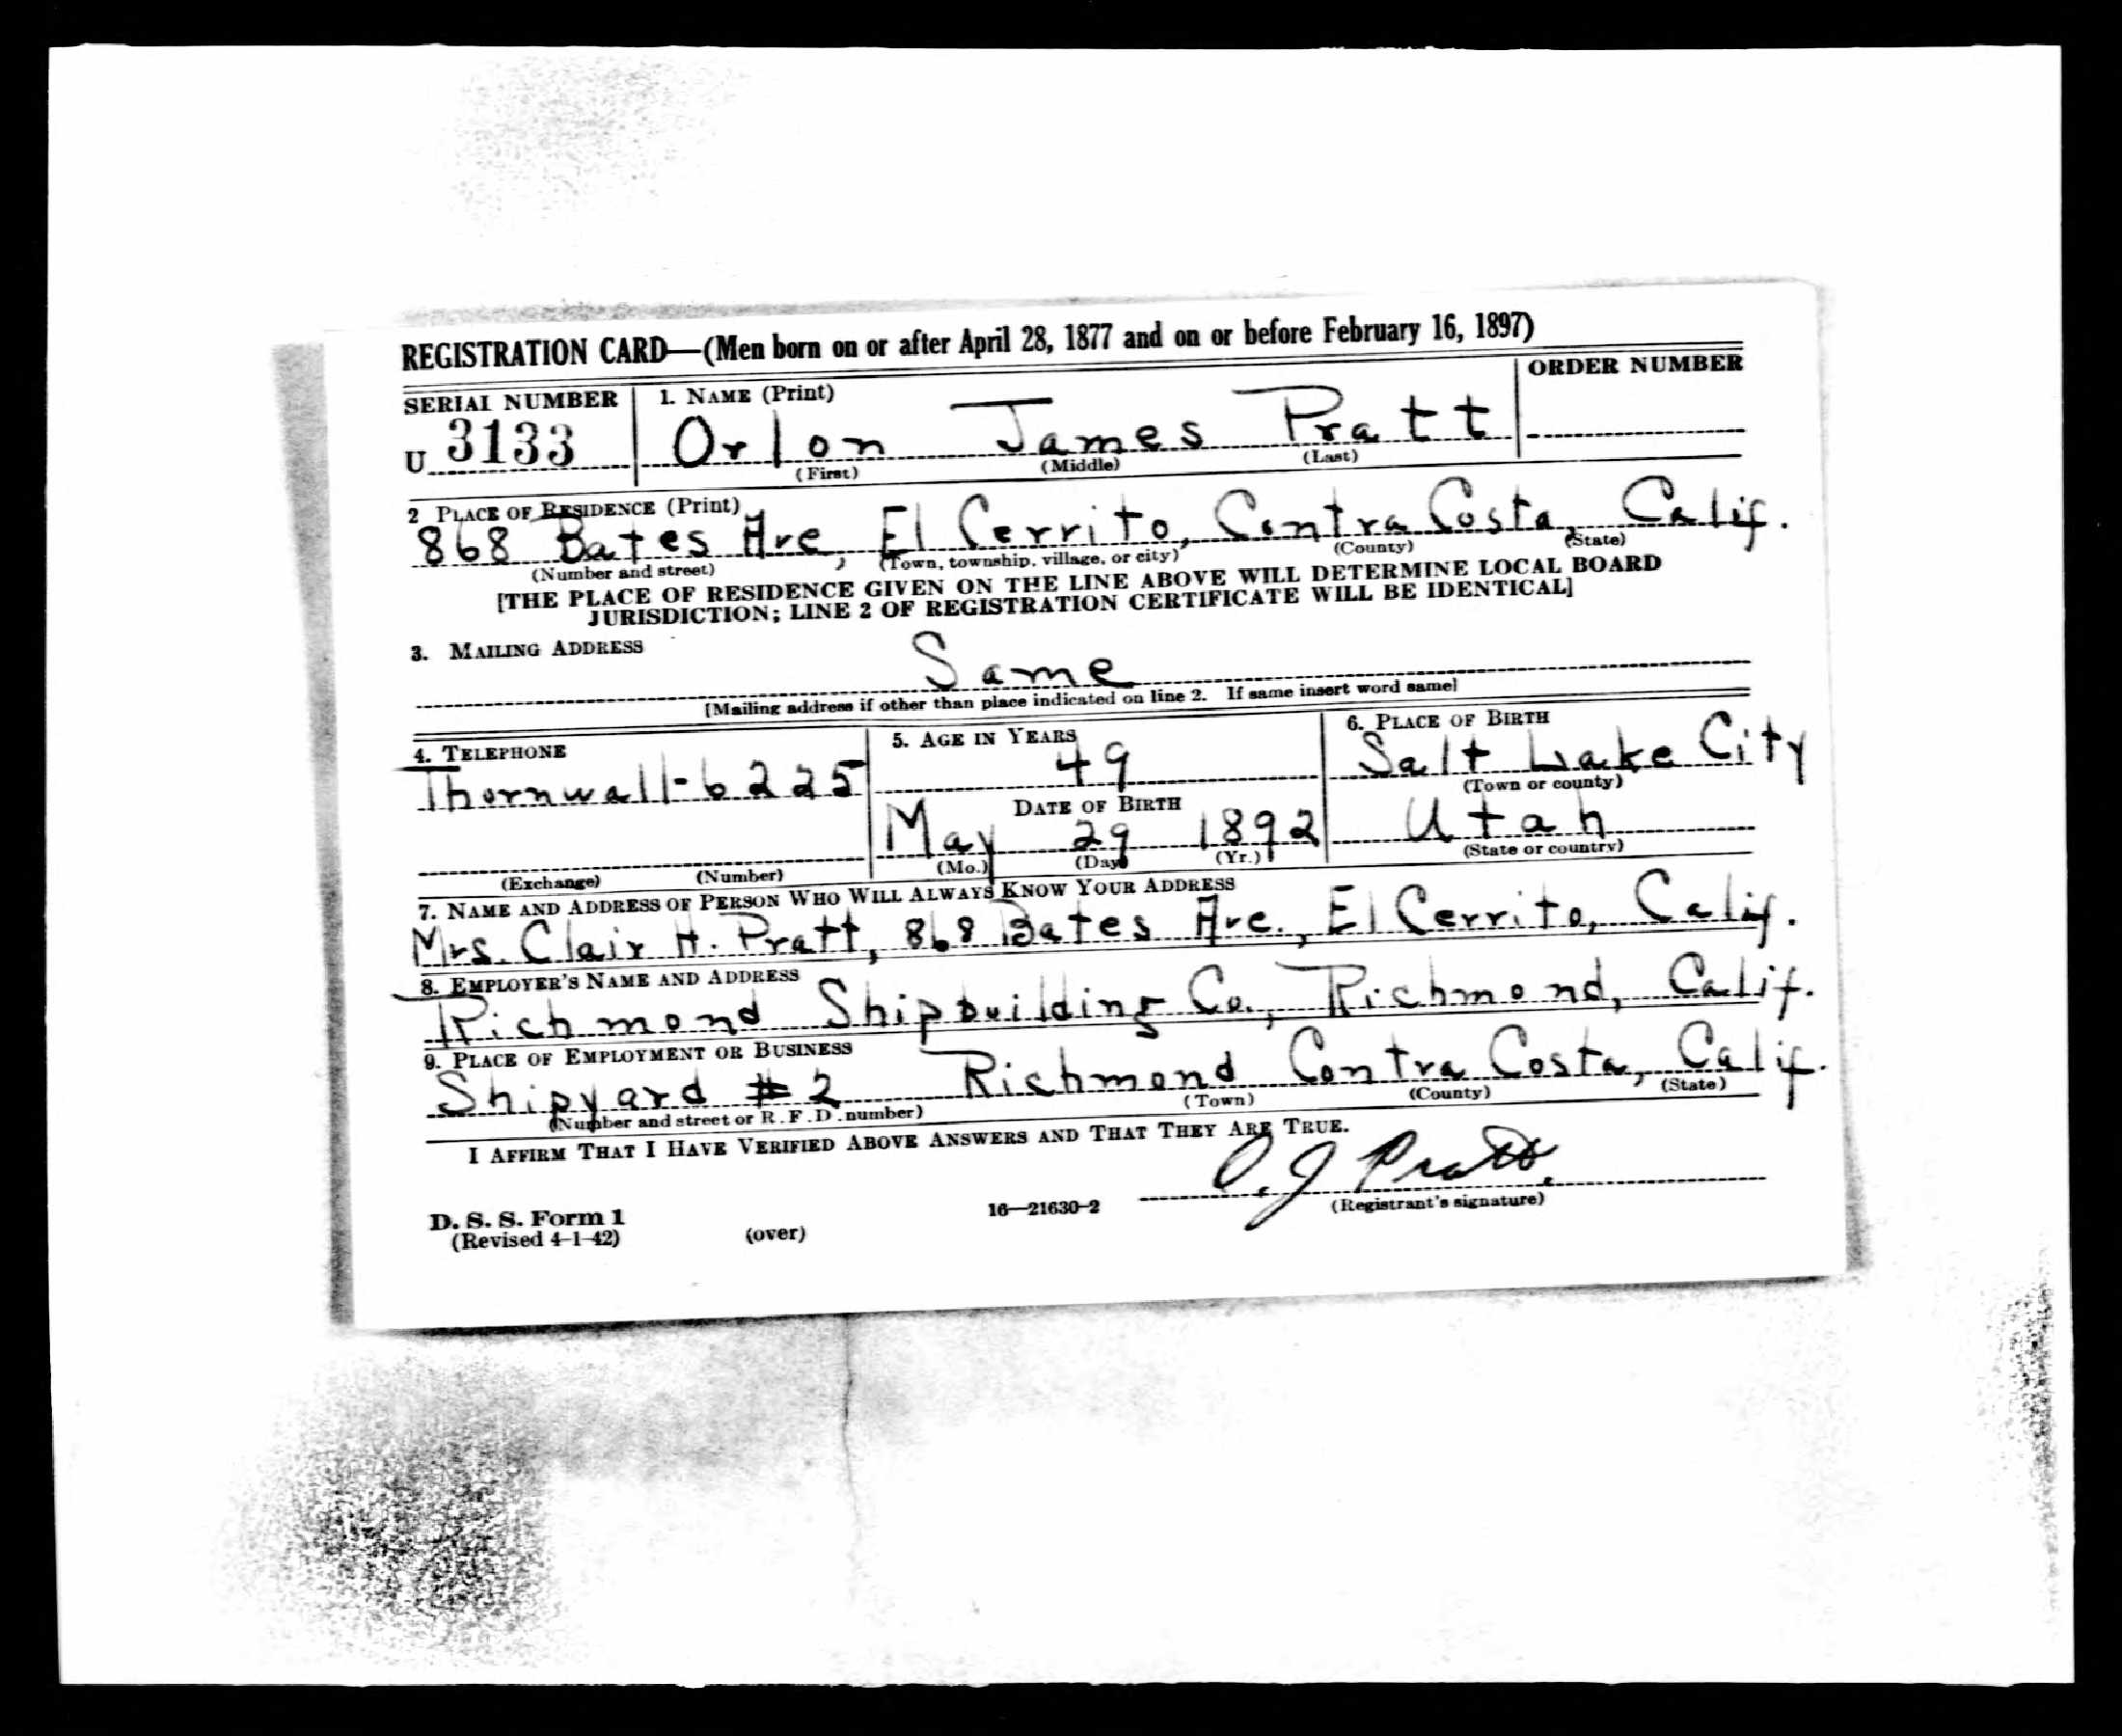 REGISTRATION CARD—(Men born on or after April 28, 1877 and on or before February 16, 1897)
SERIAL NUMBER 1. NAME (Print) ORDER NUMBER
U 3133 Orlon James Pratt
(First) (Middle) (Last)
2 PLACE OF RESIDENCE (Print)
868 Bates Ave, El Cerrito, Contra Costa, Calif.
(Number and street) (Town, township, village, or city) (County) (State)
[THE PLACE OF RESIDENCE GIVEN ON THE LINE ABOVE WILL DETERMINE LOCAL BOARD
JURISDICTION; LINE 2 OF REGISTRATION CERTIFICATE WILL BE IDENTICAL]
3. MAILING ADDRESS
Same
[Mailing address if other than place indicated on line 2. If same insert word same]
4. TELEPHONE 5. AGE IN YEARS 6. PLACE OF BIRTH
Thornwall-6225 49 Salt Lake City
(Town or county)
DATE OF BIRTH
May 29 1892 Utah
(Exchange) (Number) (Mo.) (Day) (Yr.) (State or country)
7. NAME AND ADDRESS OF PERSON WHO WILL ALWAYS KNOW YOUR ADDRESS
Mrs. Clair H. Pratt, 868 Bates Ave., El Cerrito, Calif.
8. EMPLOYER'S NAME AND ADDRESS
Richmond Shipbuilding Co., Richmond, Calif.
9. PLACE OF EMPLOYMENT OR BUSINESS
Shipyard #2 Richmond Contra Costa, Calif.
(Number and street or R. F. D. number) (Town) (County) (State)
I AFFIRM THAT I HAVE VERIFIED ABOVE ANSWERS AND THAT THEY ARE TRUE.
O. J Pratt.
D. S. S. Form 1 16—21630-2 (Registrant's signature)
(Revised 4-1-42) (over)